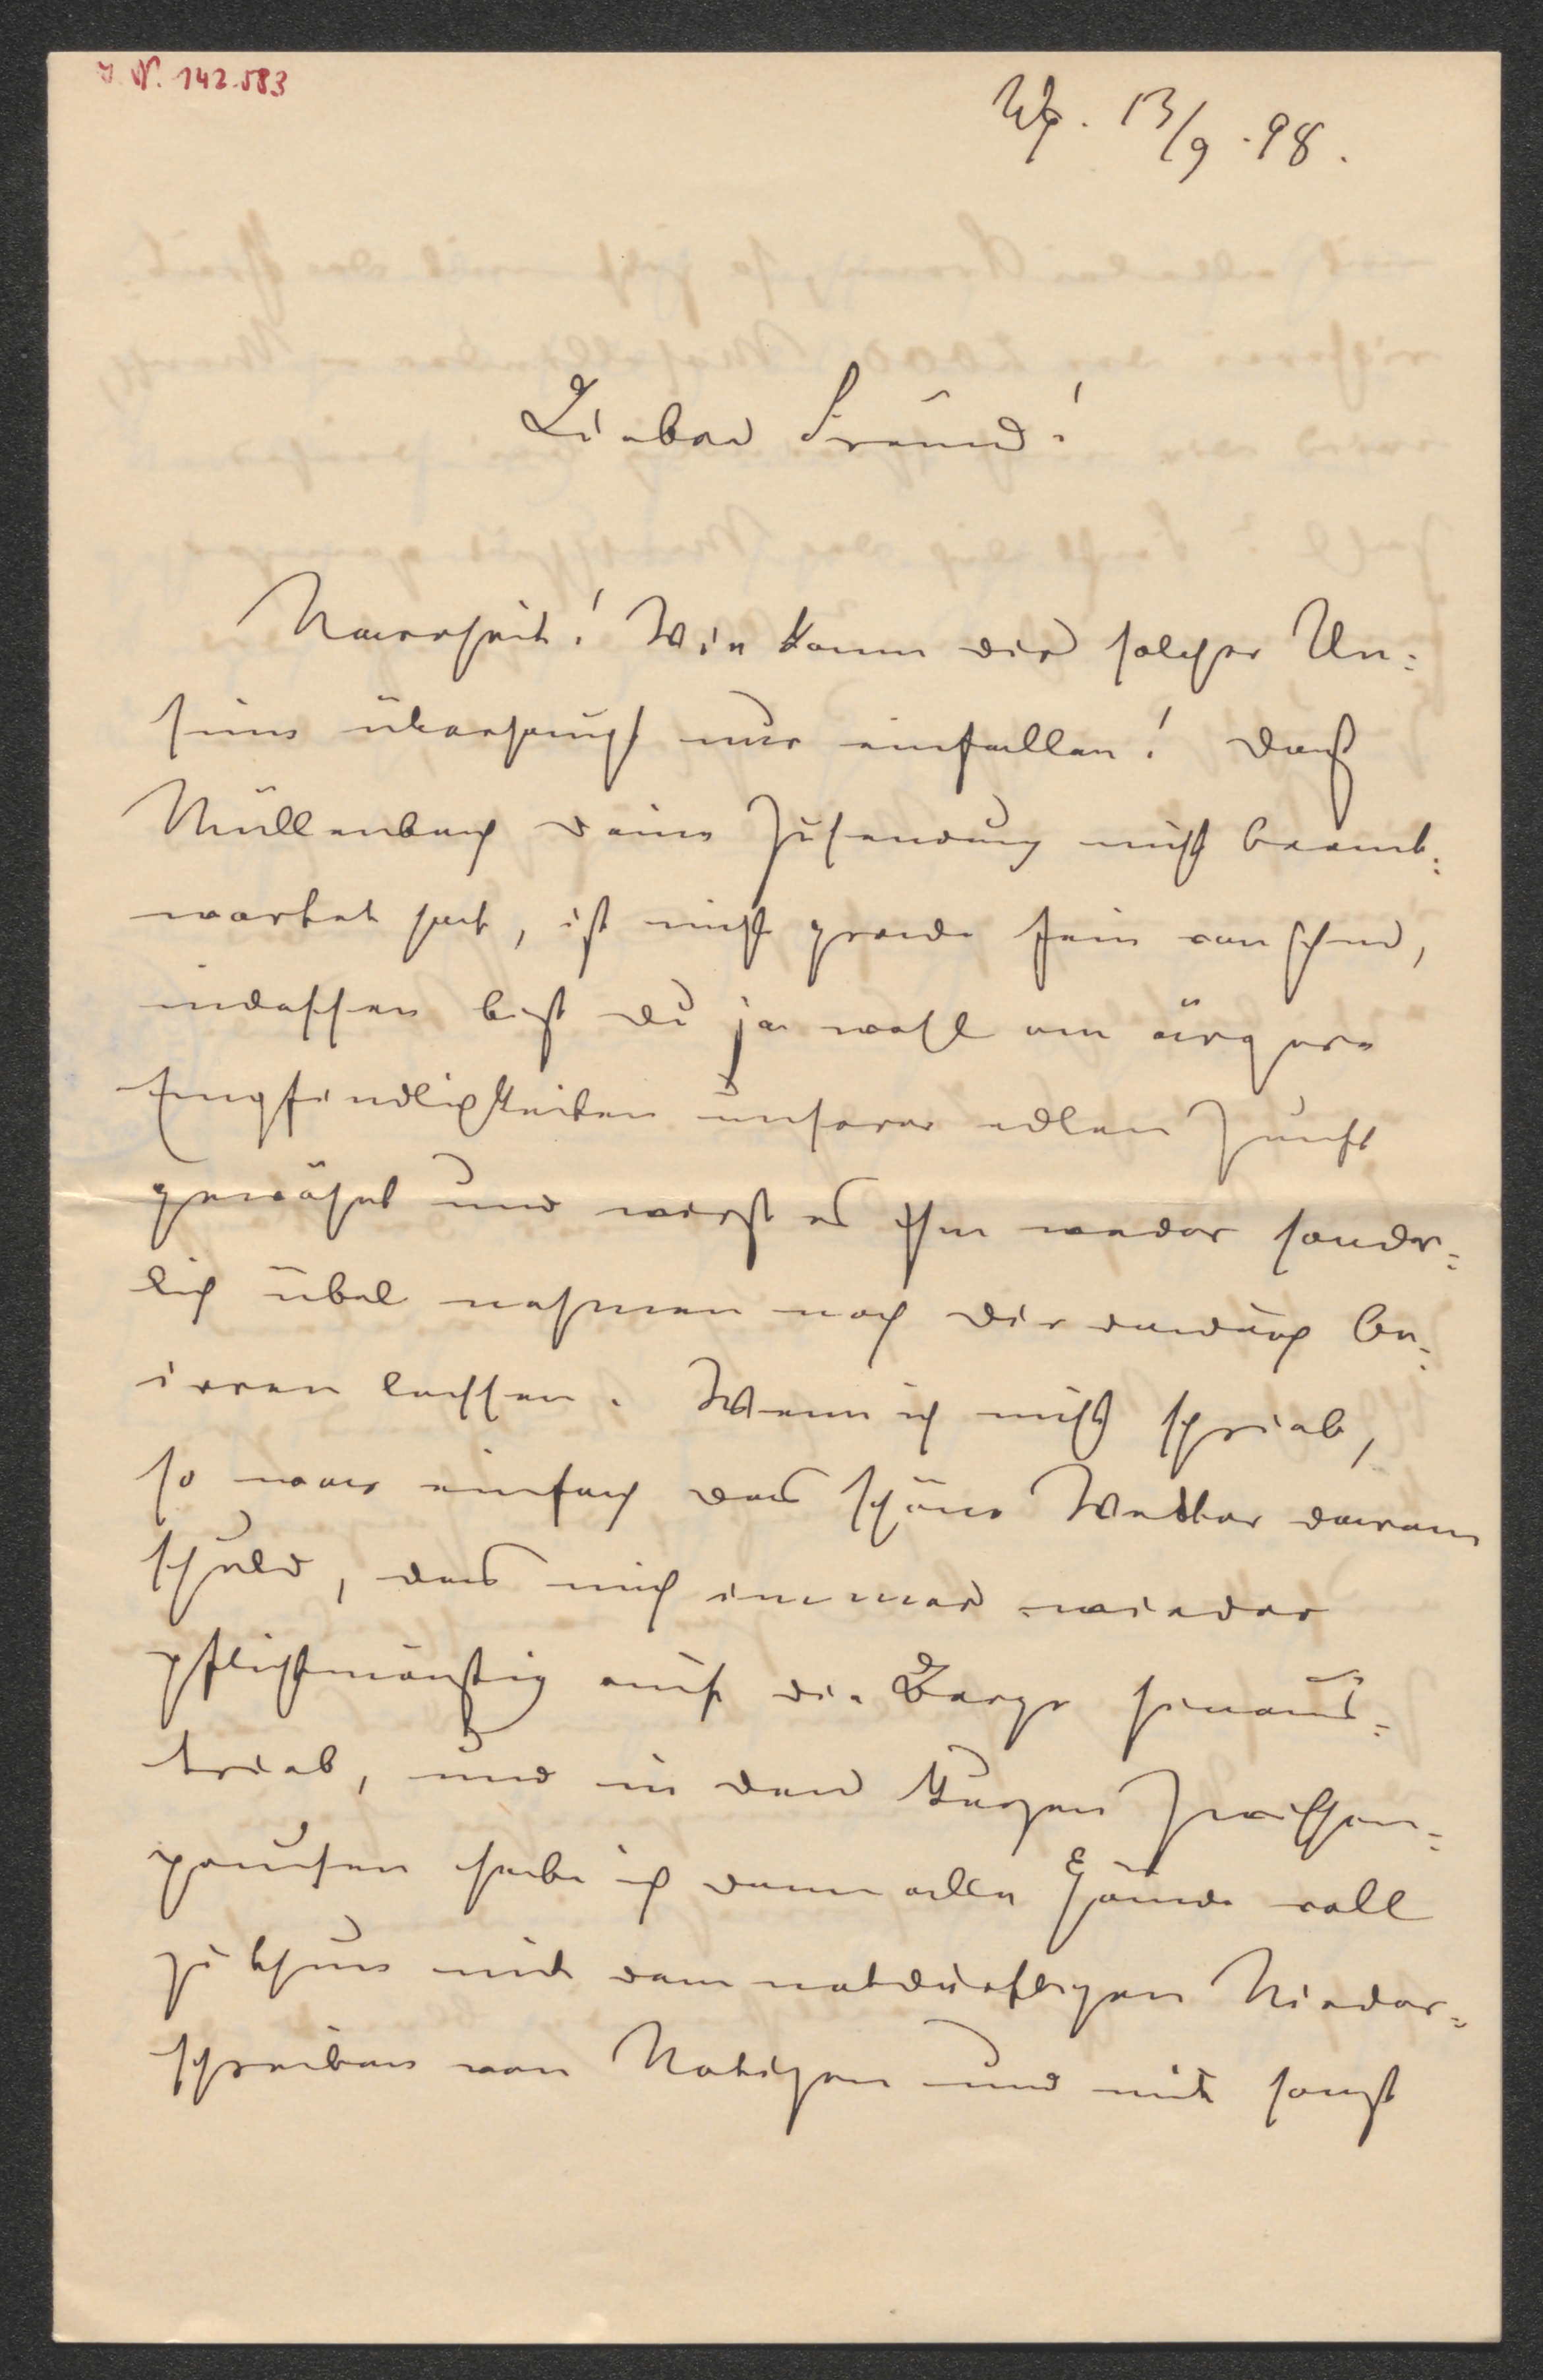 I. N. 142.583
Wp. 13/9.98.
Lieber Freund!
Narrheit! Wie kann dir solcher Un=
sinn überhaupt nur einfallen! Daß
Müllenbach deine Zusendung nicht beant=
wortet hat, ist nicht grade fein von ihm,
indessen bist du ja wohl an ärgere
Empfindlichkeiten unserer edlen Zunft
gewöhnt und wirst es ihm weder sonder=
lich übel nehmen noch dir dadurch be=
irren lassen. Wenn ich nicht schrieb,
so war einfach das schöne Wetter daran
schuld, das mich immer wieder
pflichtmäßig auf die Berge hinaus=
trieb, und in den kurzen Zwischen=
pausen habe ich dann alle Hände voll
zu thun mit dem notdürftigen Nieder=
schreiben von Notizen und mit sonst